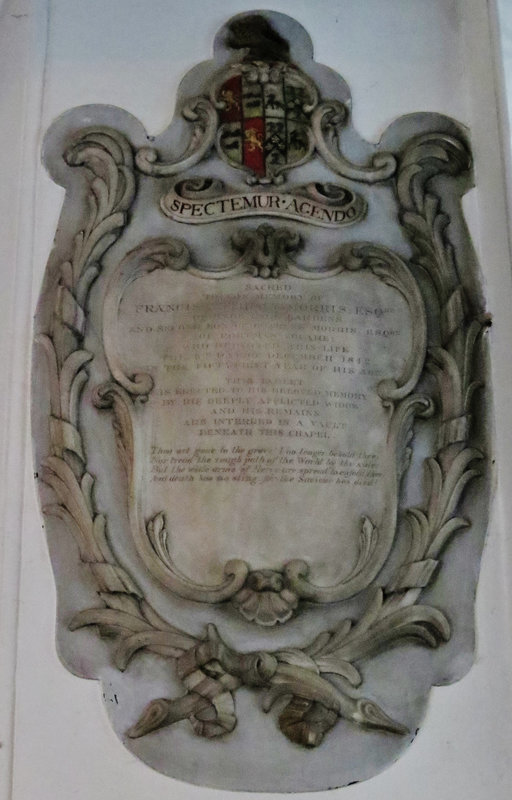 SPECTEMUR·AGENDO
SACRED
TO THE MEMORY OF
FRANCIS MORRIS, ESQRE
GARDENS
AND SECOND SON OF MORRIS, ESQRE
OF PORTMAN SQUARE:
WHO DEPARTED THIS LIFE
THE DAY OF DECEMBER 1842
IN THE FIFTY FIRST YEAR OF HIS AGE
THIS TABLET
IS ERECTED TO HIS BELOVED MEMORY
BY HIS DEEPLY AFFLICTED WIDOW
AND HIS REMAINS
ARE INTERRED IN A VAULT
BENEATH THIS CHAPEL
Thou art gone to the grave! I no longer behold thee,
Nor tread the rough path of the World by thy side:
But the wide arms of Mercy are spread to enfold thee
And death has no sting, for the Saviour has died!